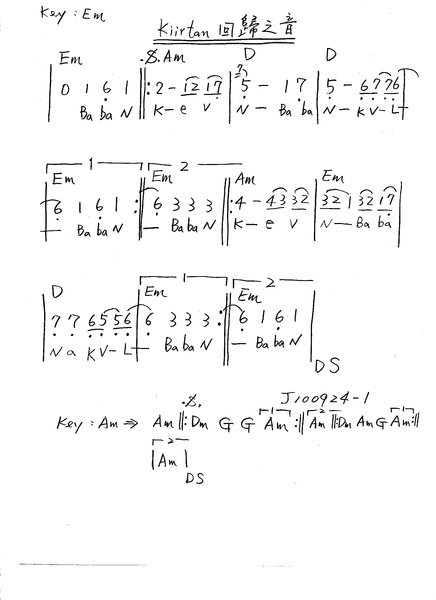 Key : Em
Kiirtan 回歸之音
Em 𝄋. Am D D
0 1 6 1 ‖: 2 - 12 17 | 7 5 - 1 7 | 5 - 67 76
Ba ba N K - e V N - Ba ba N - K V - L
1 2
Em Em Am Em
6 1 6 1 :‖ 6 3 3 3 ‖: 4 - 43 32 | 32 1 32 17 |
- Ba ba N - Ba ba N K - e V N - Ba ba
1 2
D Em Em
| 7 7 65 56 | 6 3 3 3 :‖ 6 1 6 1 |
N a K V - L - Ba ba N - Ba ba N
DS
𝄋. J100924-1
Key : Am ⇒ Am ‖: Dm G G 1 Am :‖ 2 Am ‖: Dm Am G 1 Am :‖
2
| Am |
DS